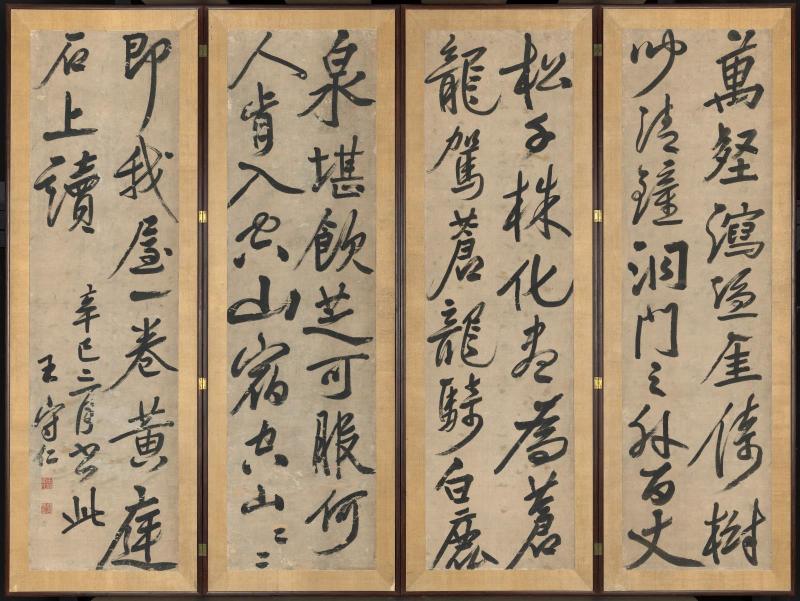 萬壑瀉厓倚樹
清鐘洞門之外百丈
松千株化盡為蒼
龍駕蒼龍騎白鹿
泉堪飲芝可服何
人肯入空山宿空山二二
即我屋一卷黃庭
石上讀
辛巳三月書此
王守仁